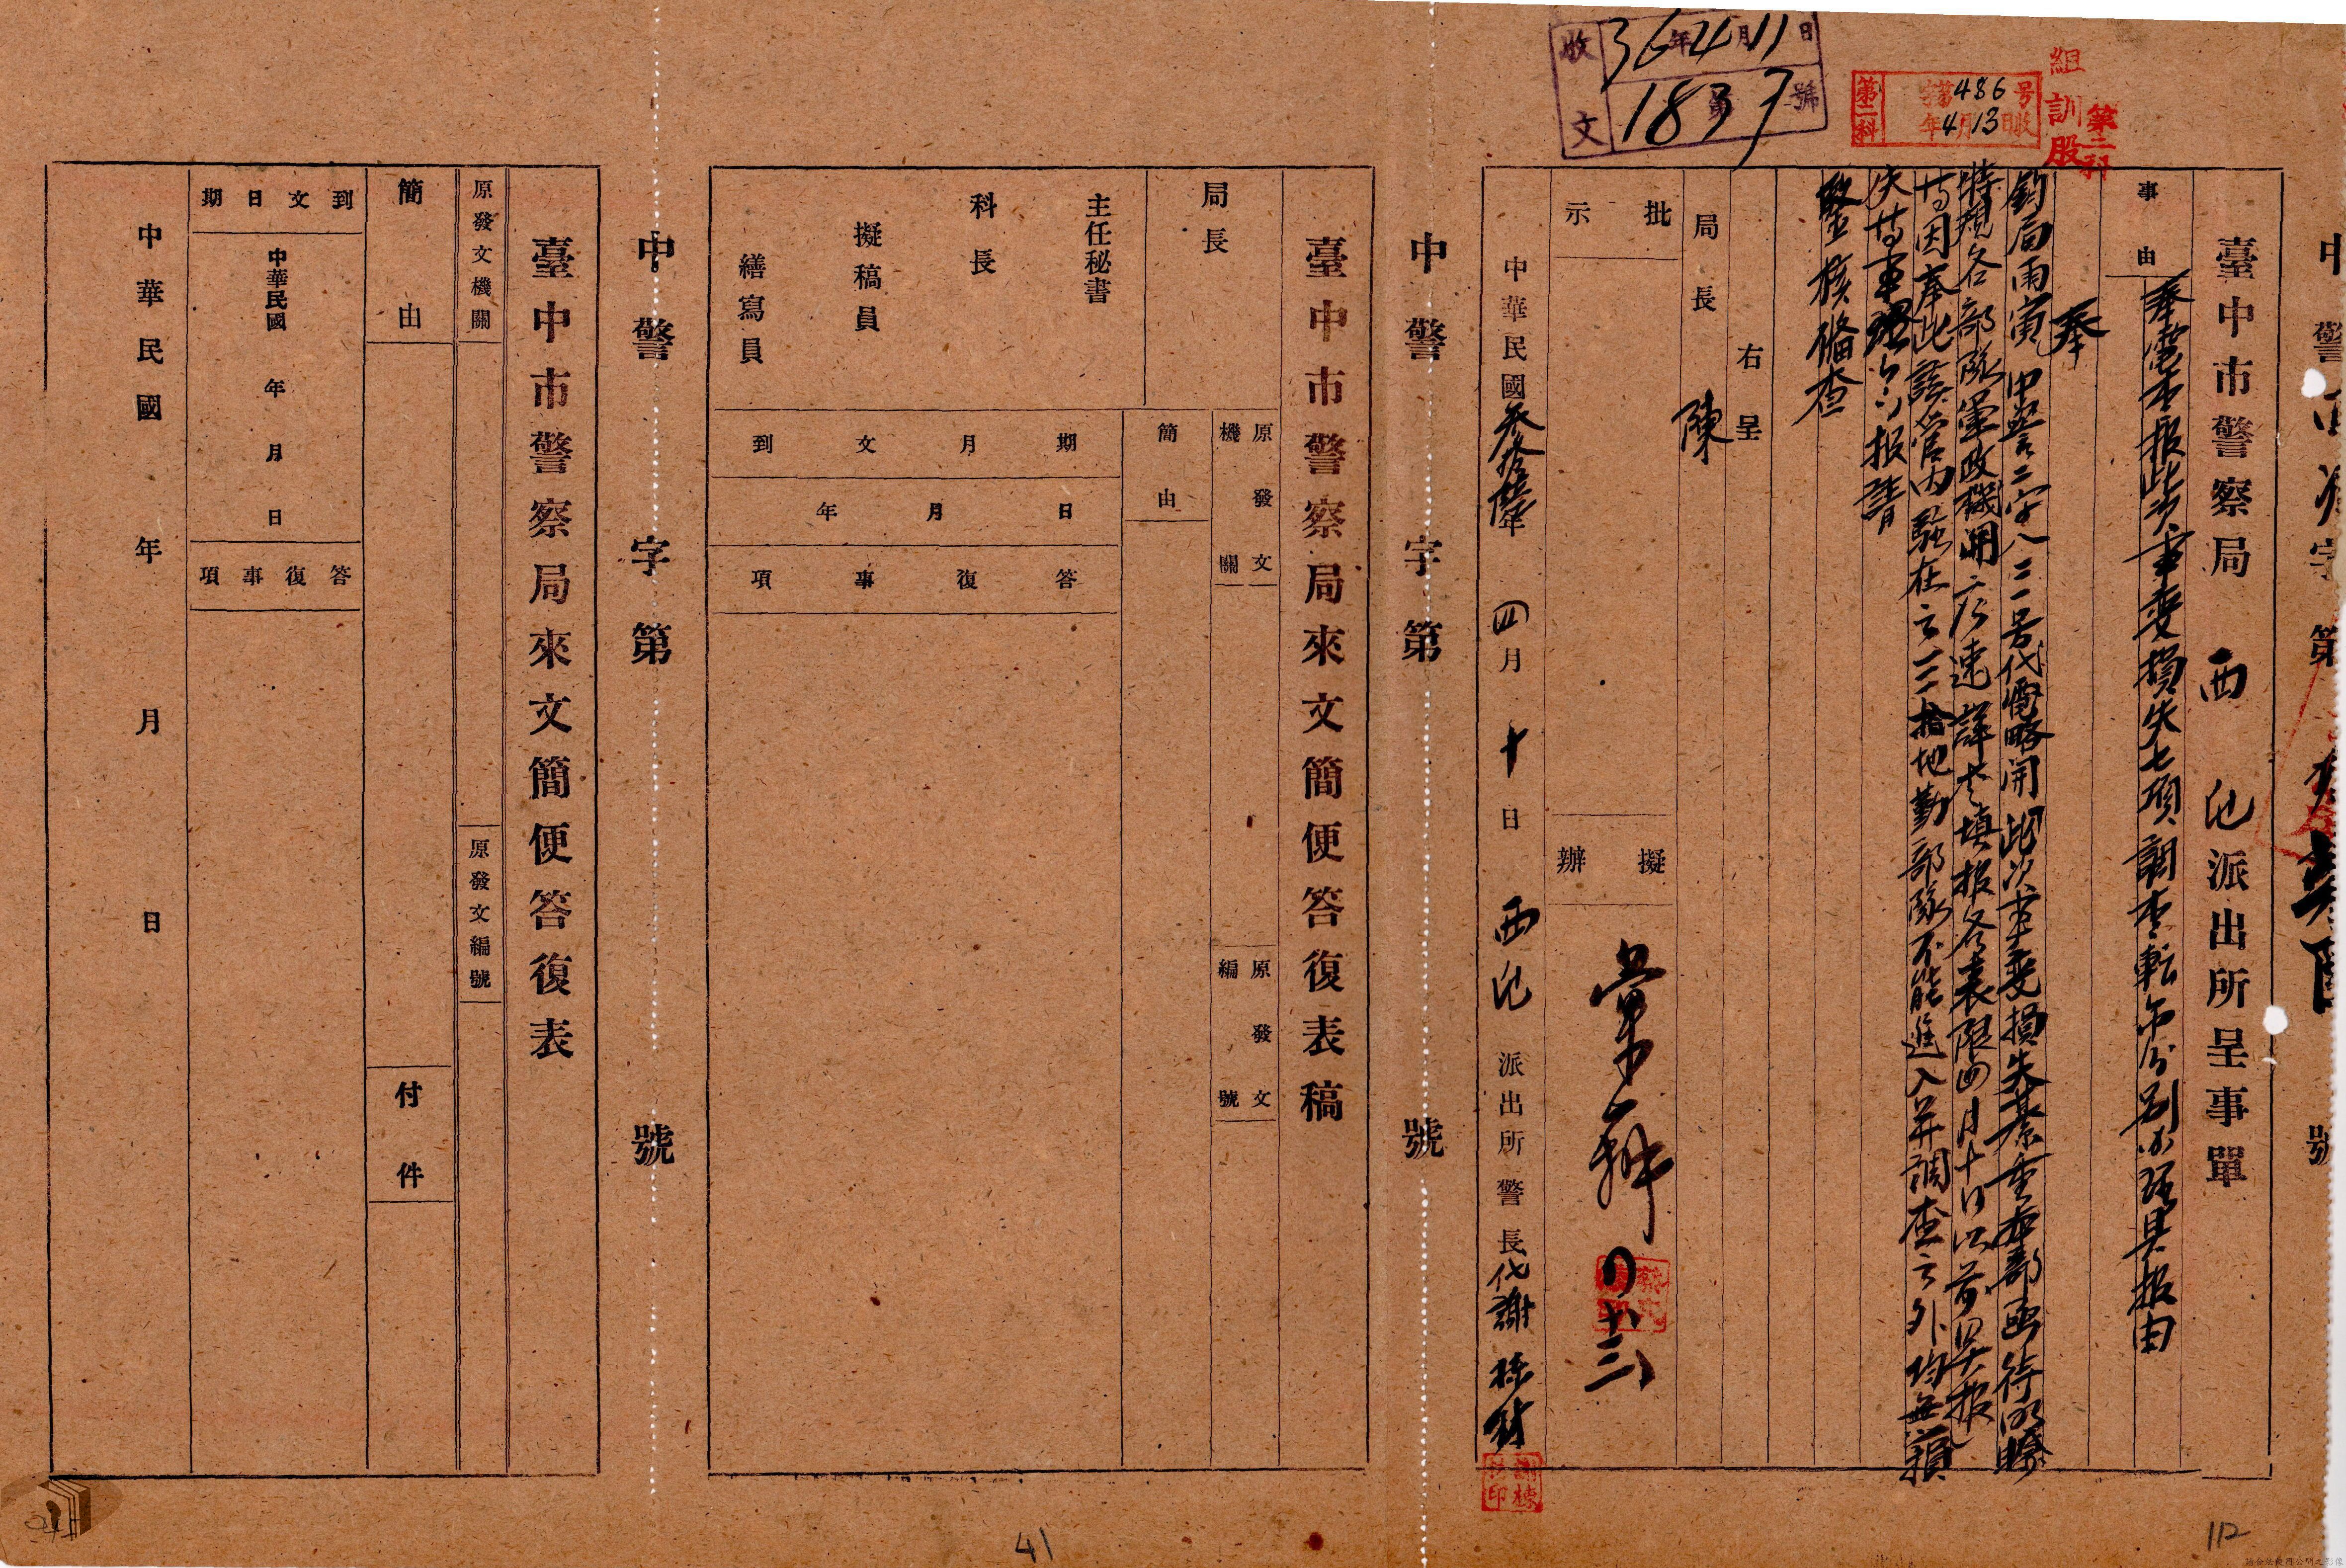 收文 36年4月11日
1837號
第二科 字第486号
年4月13日收
組訓股
第二科
中警 字第 號
臺中市警察局 西 派出所呈事單
事由
奉電查報此次事變損失七項調查転希分別小張具報由
奉
鈞局雨寅 中警二字八二一号代電略開此次事變損失綦重本部函待明瞭
特規各部隊軍政機関 速詳 填報各表限四月十日以前 報
因奉此該管內駐在之三 地勤部隊不能進入并調查之外均無損
失 報請
鑒核備查
右呈
局長 陳
批示
擬辦
四 十三
中華民國叁拾陸年 四月 十日 西 派出所警長代謝
中警字第 號
臺中市警察局來文簡便答復表稿
局長
主任秘書
科長
擬稿員
繕寫員
原發文機關
原發文編號
簡由
到文月期
年月日
答復事項
中警字第 號
臺中市警察局來文簡便答復表
原發文機關
原發文編號
簡由
付件
到文日期
中華民國 年 月 日
答復事項
中華民國 年 月 日
41
112